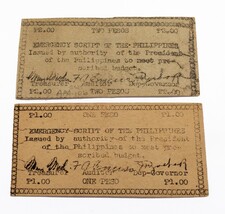 ₱2.00 TWO PESOS ₱2.00
EMERGENCY SCRIPT OF THE PHILIPPINES
Issued by authority of the President
of the Philippines to meet pre-
scribed budget.
Treasurer Auditor Dep-Governor
₱2.00 TWO PESOS ₱2.00
₱1.00 ONE PESO ₱1.00
EMERGENCY SCRIPT OF THE PHILIPPINES
Issued by authority of the President
of the Philippines to meet pre-
scribed budget.
Treasurer Auditor Dep-Governor
₱1.00 ONE PESO ₱1.00